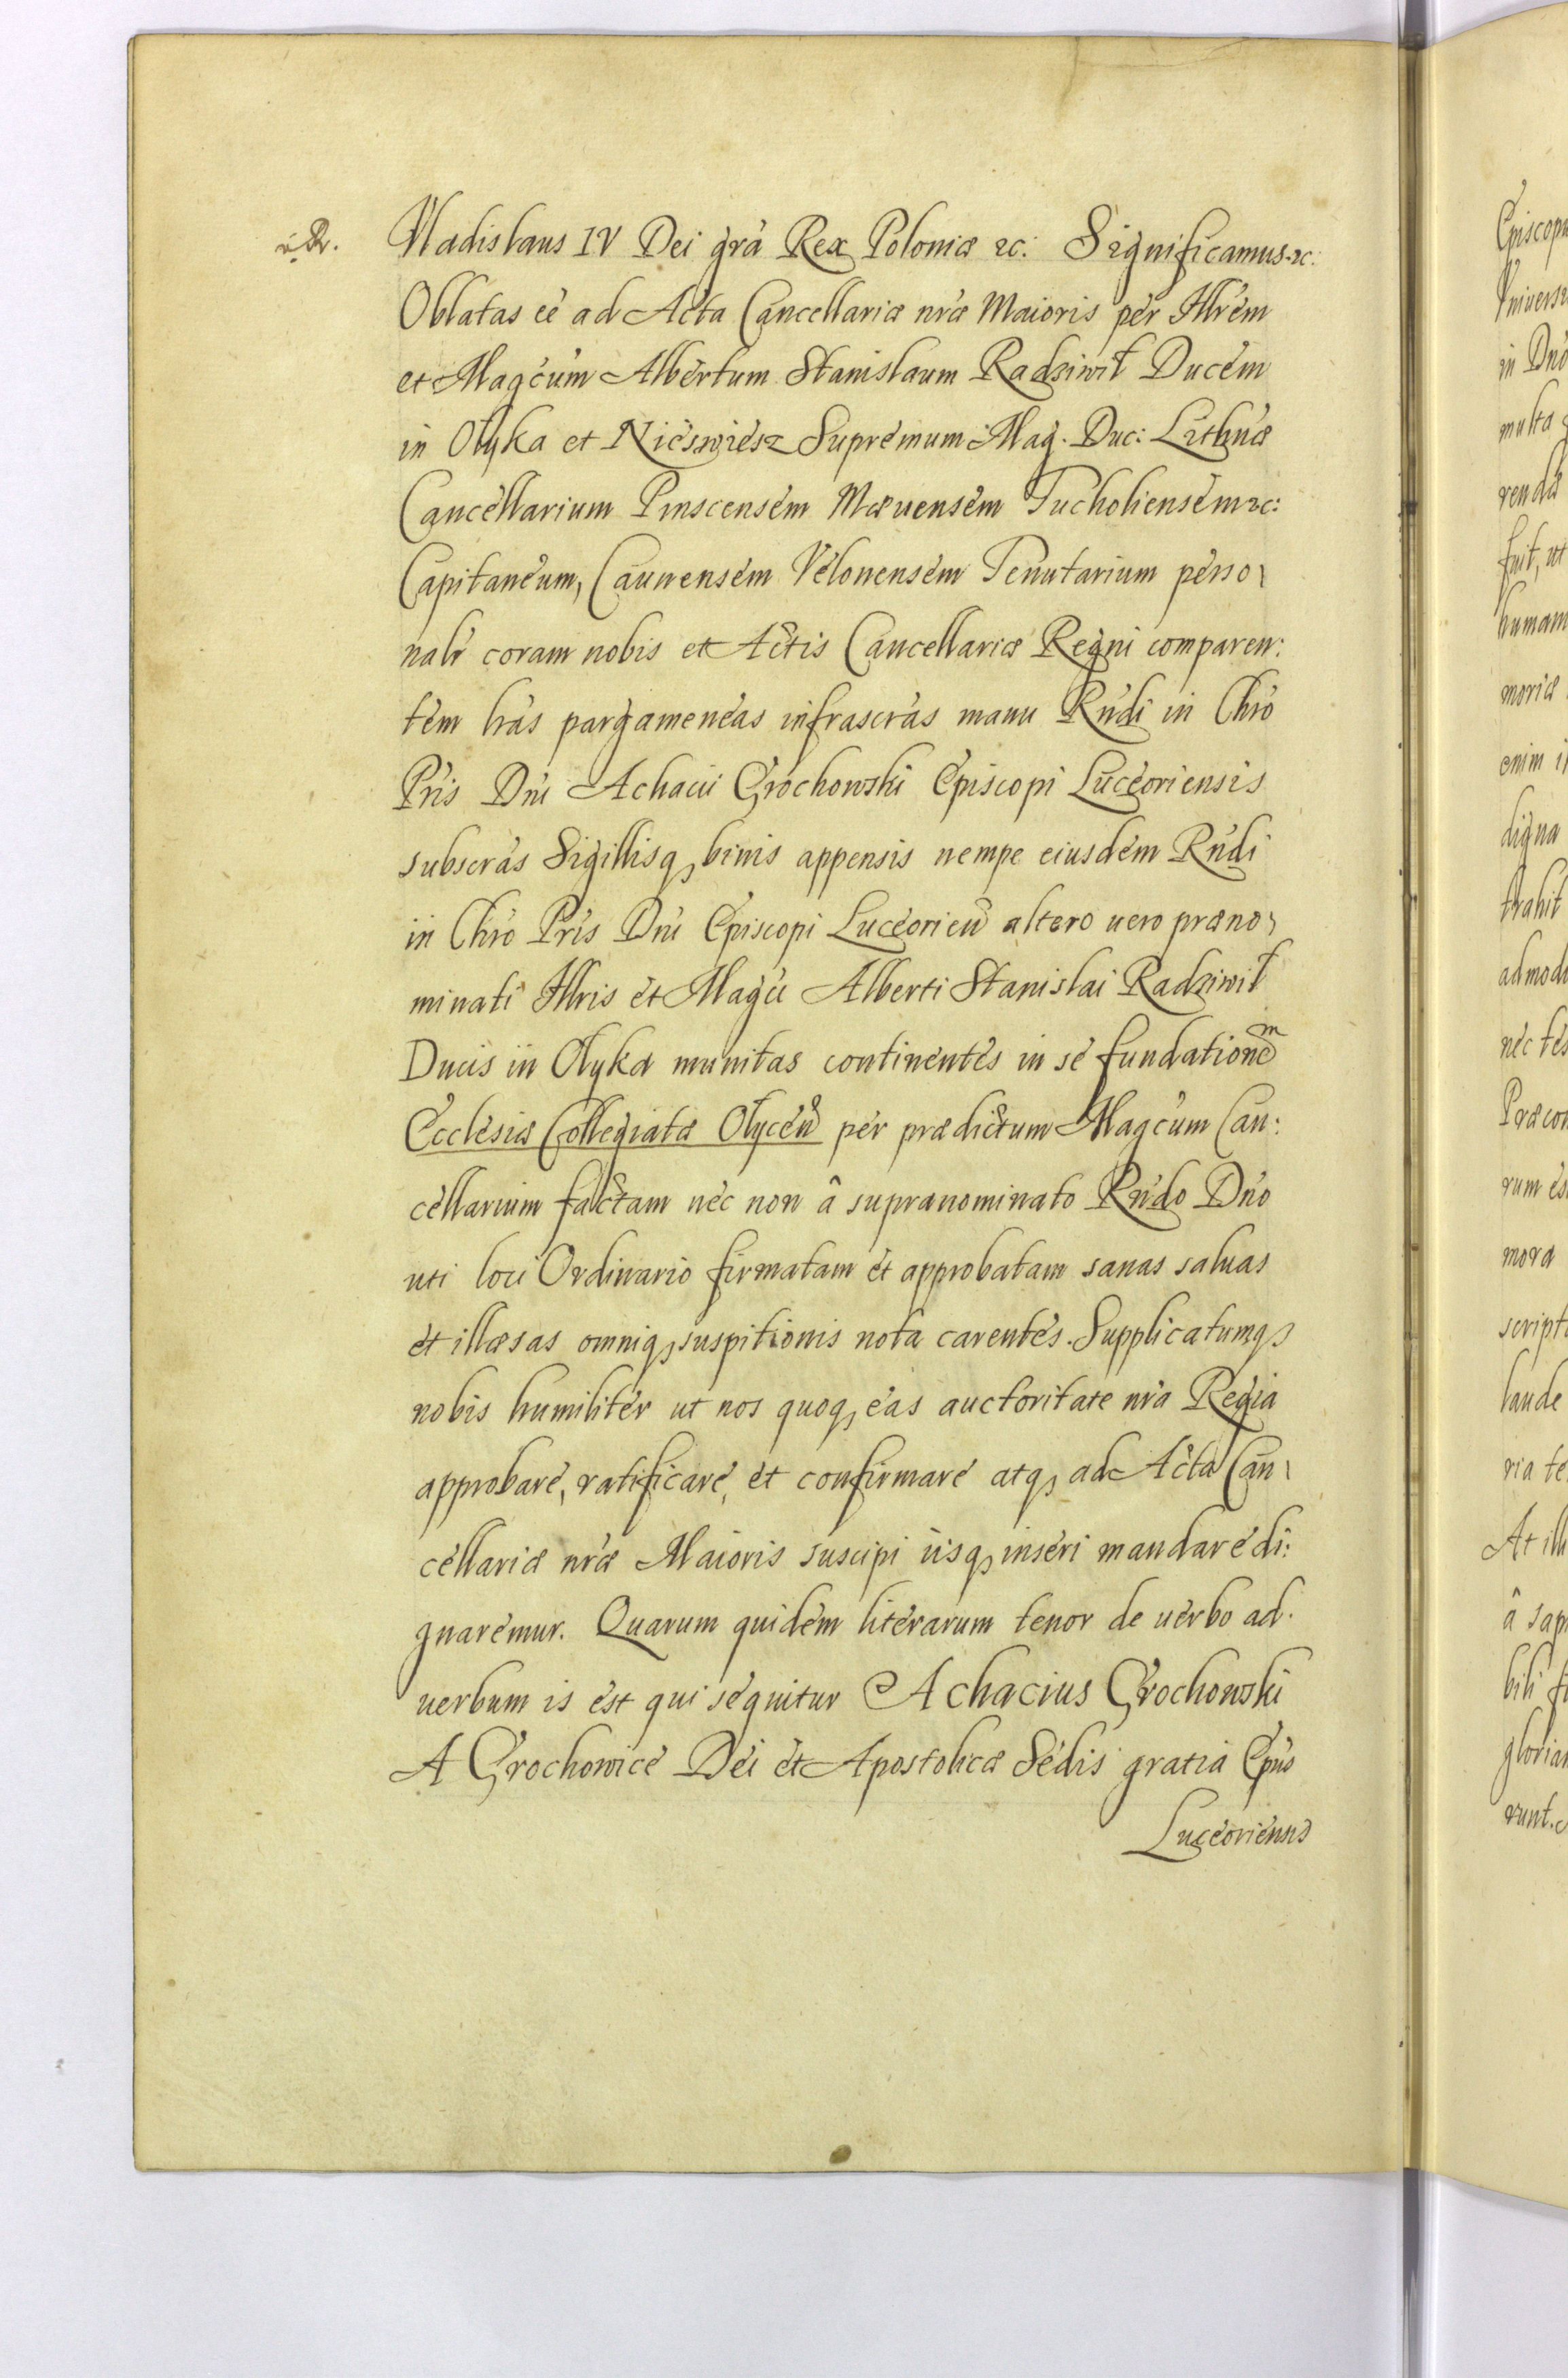 Vladislaus IV Dei grã Rex Poloniæ &c: Significamus &c:
Oblatas eẽ ad Acta Cancellariæ nræ Maioris per Illrem
et Magcum Albertum Stanislaum Radziwił Ducem
in Olyka et Nieswiesz Supremum Mag. Duc: Lithuæ
Cancellarium Pinscensem Mæuensem Tucholiensem &c:
Capitaneum, Caunensem Velonensem Tenutarium perso\
nalr coram nobis et Actis Cancellariæ Regni comparen:
tem lras pargameneas infrascras manu Rndi in Chro
Pris Dni Achacii Grochowski Episcopi Luceoriensis
subscras Sigillisq, binis appensis nempe eiusdem Rndi
in Chro Pris Dni Episcopi Luceorien altero uero præno\
minati Illris et Magci Alberti Stanislai Radziwił
Ducis in Olyka munitas continentes in se fundationem
Ecclesiæ Collegiatæ Olycen per prædictum Magcum Can:
cellarium factam nec non â supranominato Rndo Dno
uti loci Ordinario firmatam et approbatam sanas saluas
et illæsas omniq, suspitionis nota carentes. Supplicatumq,
nobis humiliter ut nos quoq, eas auctoritate nra Regia
approbare, ratificare, et confirmare atq, ad Acta Can\
cellariæ nræ Maioris suscipi iisq, inseri mandare di:
gnaremur. Quarum quidem literarum tenor de uerbo ad
uerbum is est qui sequitur Achacius Grochowski
A Grochowice Dei et Apostolicæ Sedis gratia Epus
Luceoriensis